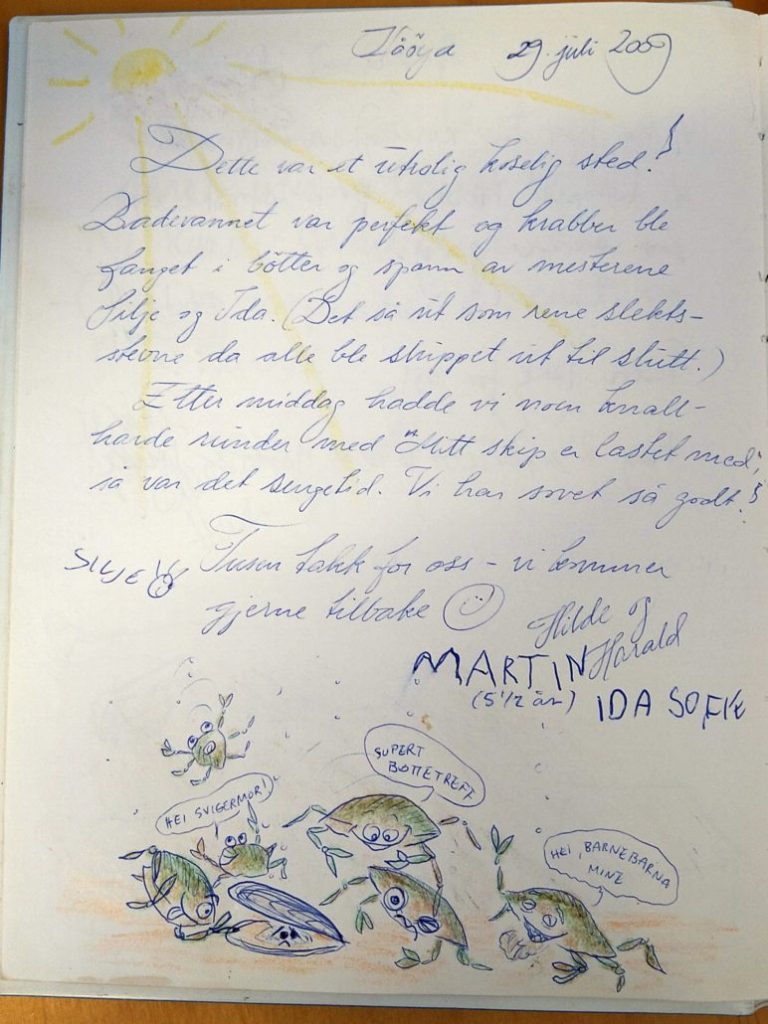 29. juli 2009
Dette var et utrolig koselig sted!
Badevannet var perfekt og krabber ble
fanget i bøtter og spann av mesterene
Silje og Ida. (Det så ut som rene slekts-
stevne da alle ble sluppet ut til slutt.)
Etter middag hadde vi noen knall-
harde runder med "Mitt skip er lastet med",
så var det sengetid. Vi har sovet så godt!
Tusen takk for oss - vi kommer
gjerne tilbake
SILJE
Hilde og
Harald
MARTIN
(5 1/2 år)
IDA SOFIE
SUPERT
BØTTETREFF
HEI SVIGERMOR!
HEI, BARNEBARNA
MINE